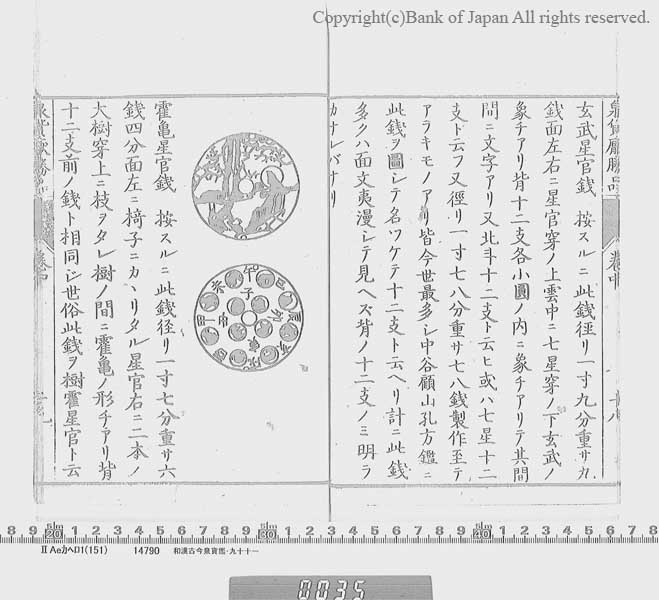 Copyright(c)Bank of Japan All rights reserved.
玄武星官銭 按スルニ此銭徑リ一寸九分重サ九
銭面左右ニ星官穿ノ上雲中ニ七星穿ノ下玄武ノ
象チアリ背十二支各小圓ノ内ニ象チアリテ其間
間ニ文字アリ又北斗十二支ト云ヒ或ハ七星十二
支ト云フ又徑リ一寸七八分重サ七八銭製作至テ
アラキモノアリ皆今世最多シ中谷顧山孔方鑑ニ
此銭ヲ圖シテ名ツケテ十二支ト云ヘリ計ニ此銭
多クハ面文夷漫シテ見ヘズ背ノ十二支ノミ明ラ
カナレバナリ
霍亀星官銭 按スルニ此銭徑リ一寸七分重サ六
銭四分面左ニ椅子ニカヽリタル星官右ニ二本ノ
大樹穿上ニ枝ヲタレ樹ノ間ニ霍亀ノ形チアリ背
十二支前ノ銭ト相同シ世俗此銭ヲ樹霍星官ト云
卷中
II Aeカヘロ1(151) 14790 和漢古今泉貨鑑・九十十一
0035